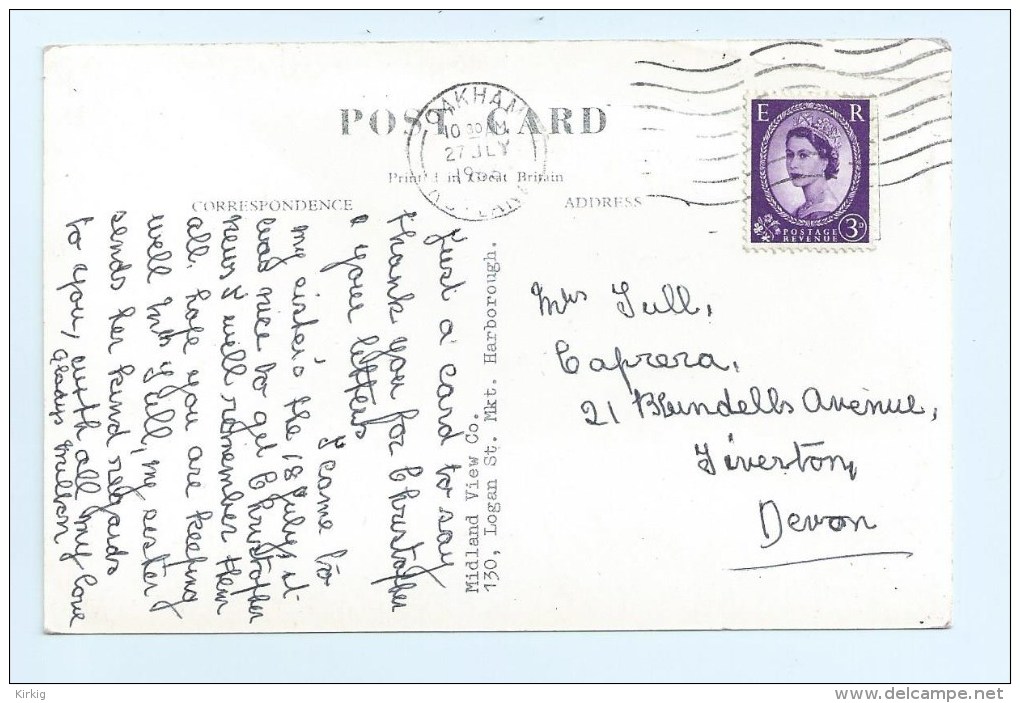 POST CARD
OAKHAM
10 30 AM
27 JLY
RUTLAND
Printed in Great Britain
CORRESPONDENCE
ADDRESS
E R
POSTAGE
REVENUE
3D
Just a card to say
thank you for Christopher
& your letters
I came to
my sister's the 18th July, it
was nice to get Christopher
news I will remember them
all. hope you are keeping
well Mrs Tull, my sister
sends her kind regards
to you, with all my love
Gladys
Midland View Co.
130, Logan St. Mkt. Harborough.
Mrs Tull,
Caprera,
21 Blundells Avenue,
Tiverton,
Devon
Kirkig
www.delcampe.net